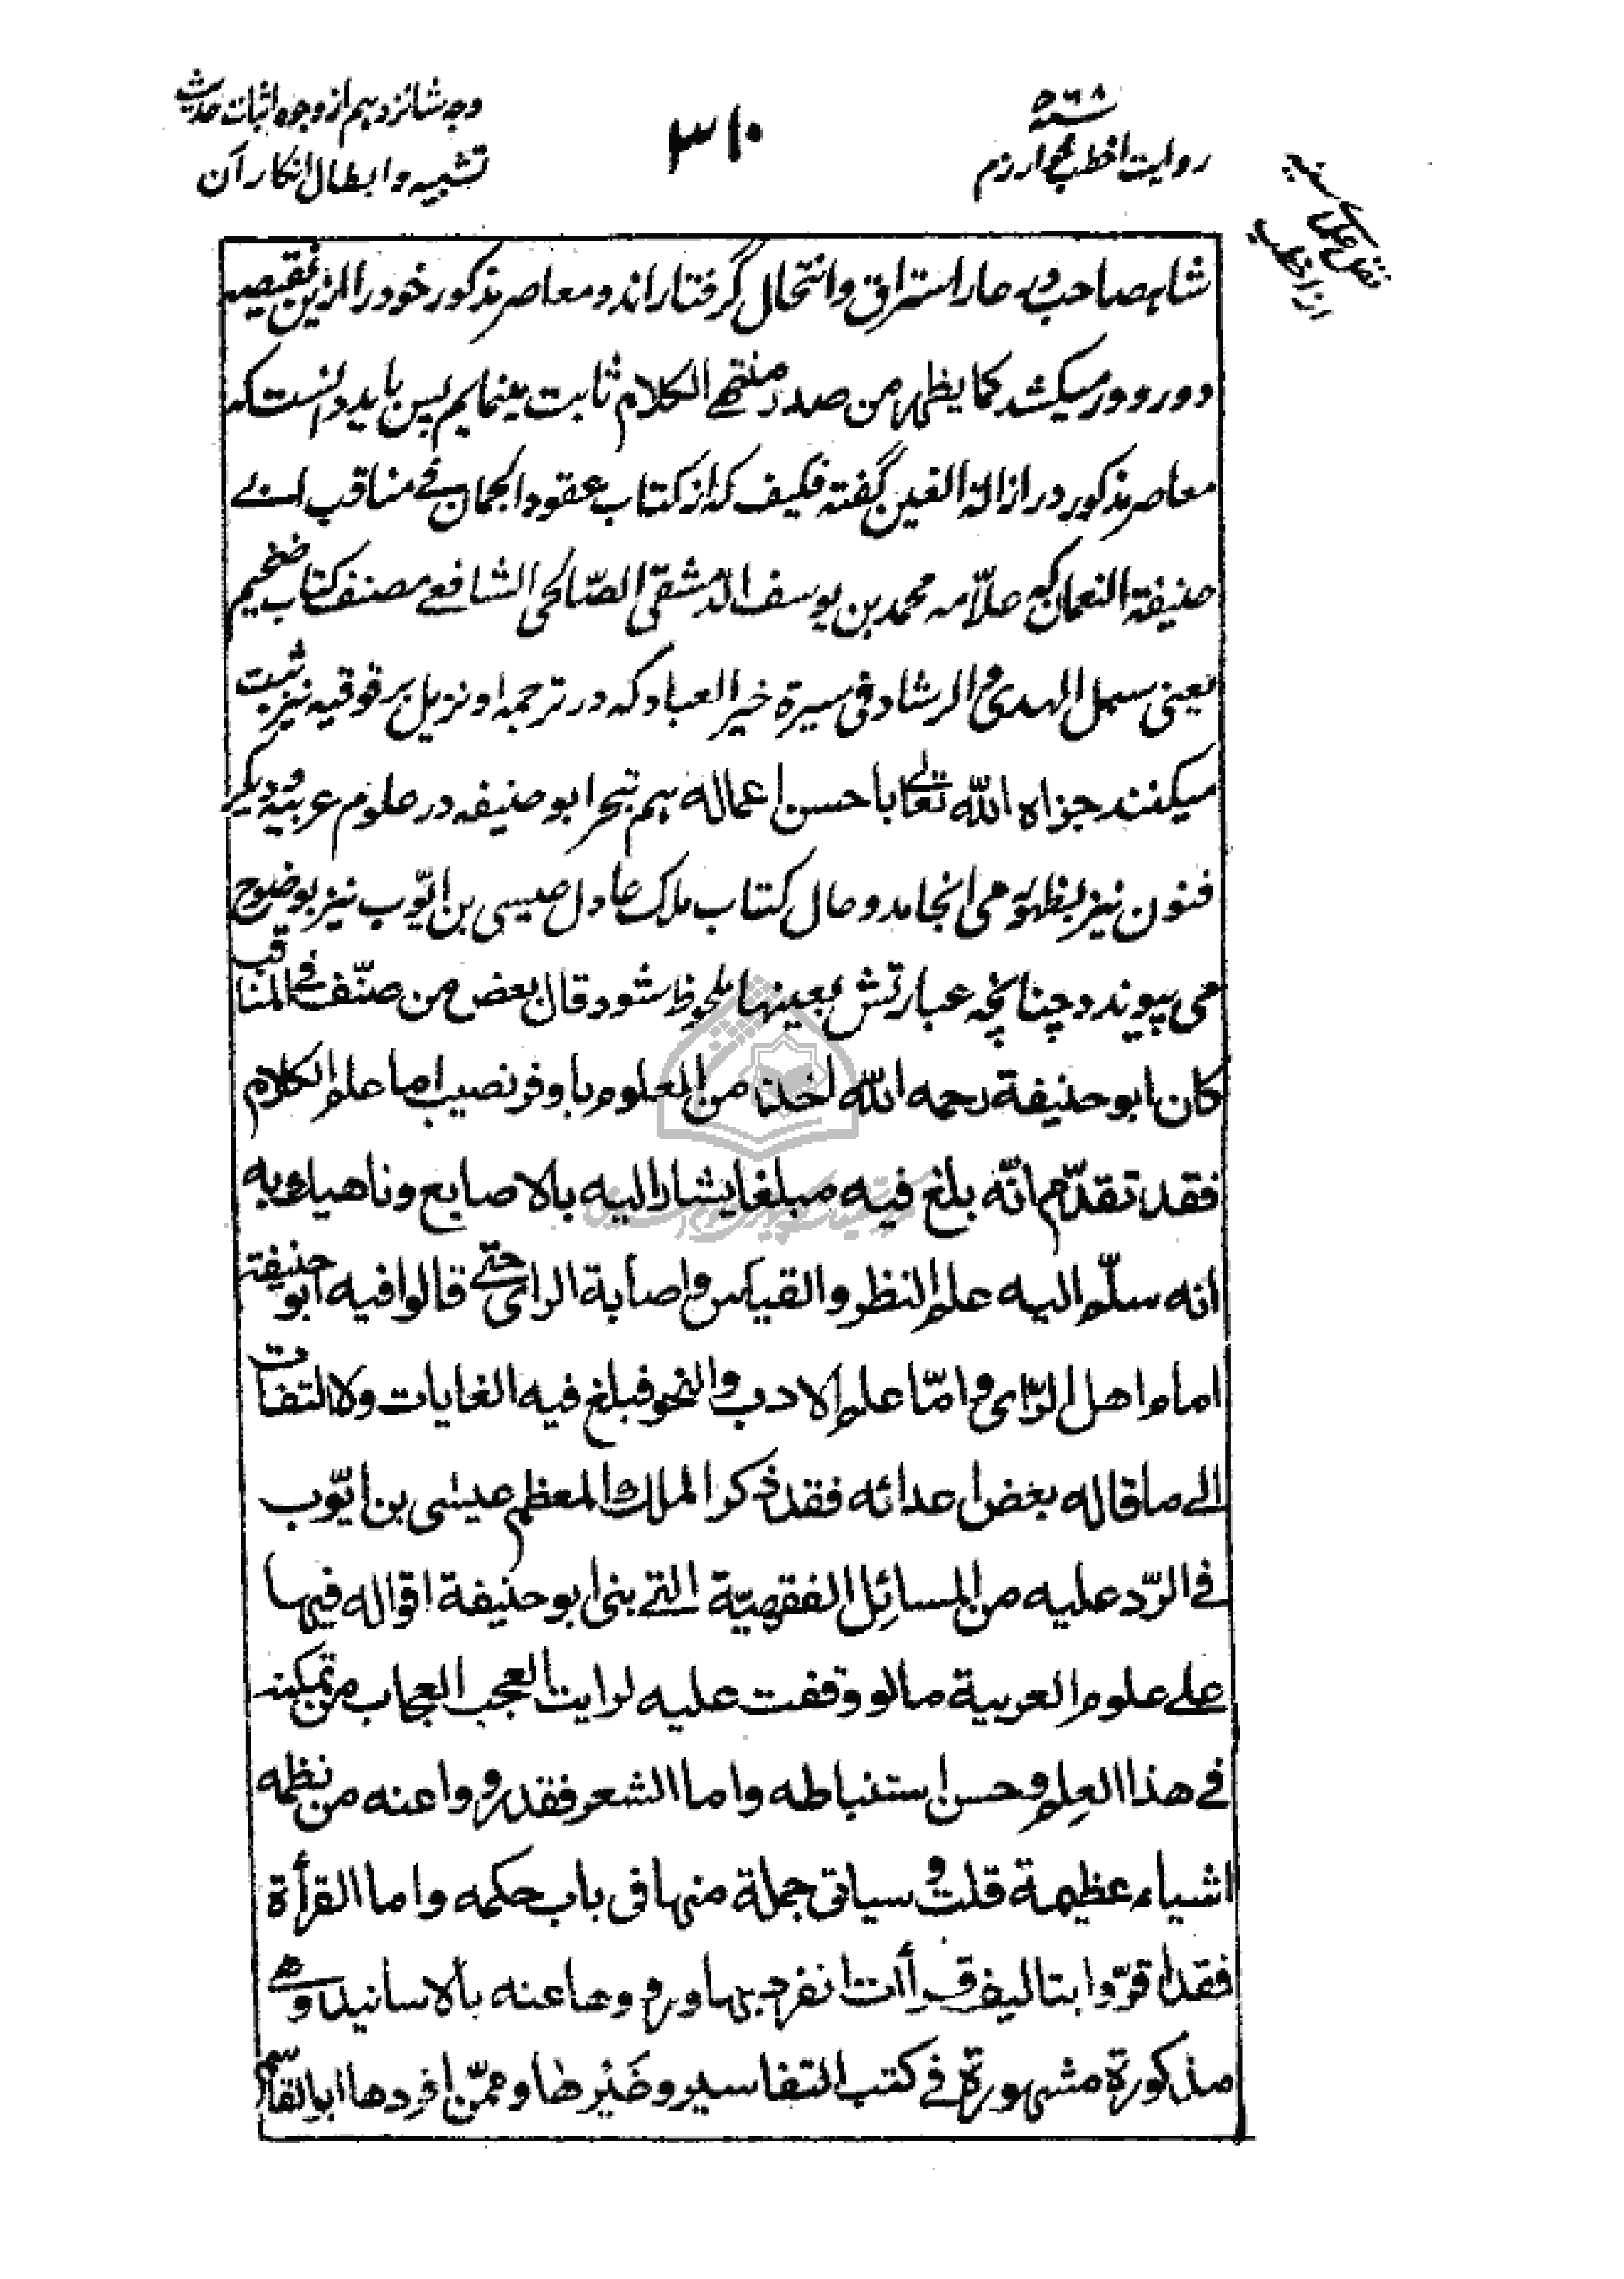 وجه شانزدهم از وجوه اثبات حدیث
تشبیه و ابطال انکار آن
۳۱۰
۵۶۸ سنه
روایت اخطب خوارزم
نقل علمای سنیه
از اخطب
شاهصاحب در عار استراق و انتحال گرفتار اند و معاصر مذکور خود را ازین نقیصه
دور دور میکشد کما یظهر من صدر منتهے الکلام ثابت مینمایم پس باید دانست که
معاصر مذکور در ازالة الغین گفته فکیف که از کتاب عقود الجمان فے مناقب ابے
حنیفة النعمان که علّامه محمد بن یوسف الدّمشقی الصّالحی الشافعے مصنف کتاب ضخیم
یعنی سبل الهدی و الرشاد فی سیرة خیر العباد که در ترجمه او نزیل برقوقیه نیز ثبت
میکنند جزاه الله تعالے باحسن اعماله هم تبحر ابو حنیفه در علوم عربیة و دیگر
فنون نیز بظهور می انجامد و حال کتاب ملک عادل عیسی بن ایّوب نیز بوضوح
می پیوندد چنانچه عبارتش بعینها ملحوظ شود قال بعض من صنّف فے المناقب
کان ابو حنیفة رحمه الله اخذ من العلوم باوفر نصیب اما علم الکلام
فقد تقدّم انّه بلغ فیه مبلغا یشار الیه بالاصابع و ناهیک به
انه سلّم الیه علم النظر و القیاس و اصابة الرای حتے قالوا فیه ابو حنیفة
امام اهل الرّای و امّا علم الادب و النحو فبلغ فیه الغایات و لا التفات
الے ما قاله بعض اعدائه فقد ذکر الملک المعظم عیسی بن ایّوب
فے الرّد علیه من المسائل الفقهیّة التے بنی ابو حنیفة اقواله فیها
علے علوم العربیة ما لو وقفت علیه لرایت العجب العجاب من تمکنه
فے هذا العلم و حسن استنباطه و اما الشعر فقد رووا عنه من نظمه
اشیاء عظیمة قلت و سیاتی جملة منها فی باب حکمه و اما القرأة
فقد اقرّوا بتالیف قرأات انفرد بها و رووها عنه بالاسانید و هے
مذکورة مشهورة فے کتب التفاسیر و غیرها و ممّن افردها ابو القاسم